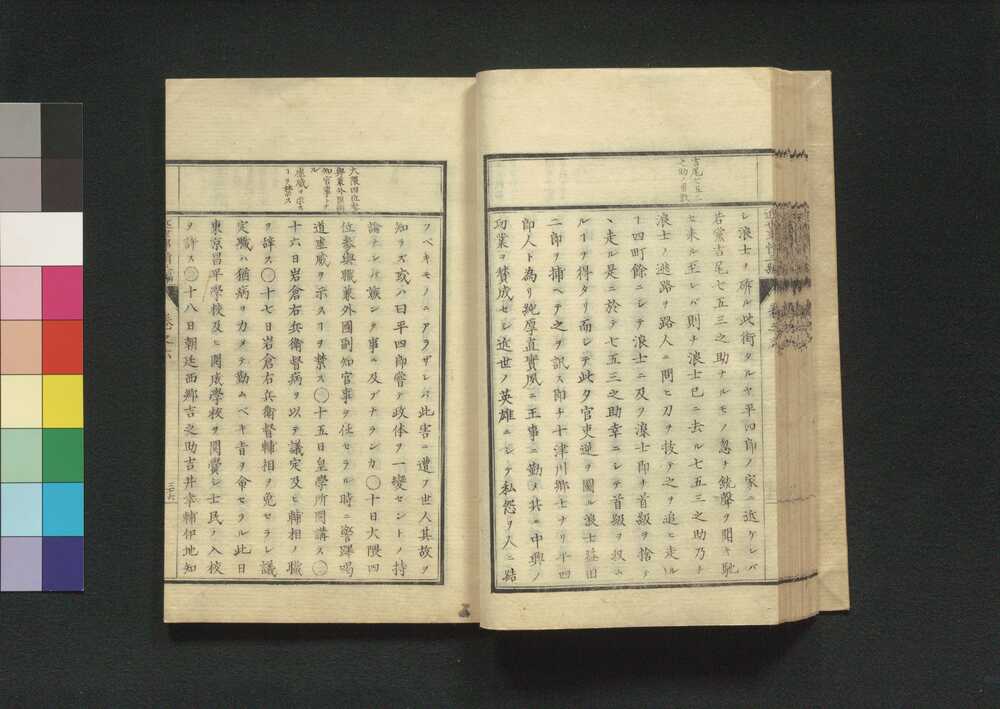 吉尾七五三
之助ノ首級
レ浪士ヲ斫ル此街タルヤ平四郎ノ家ニ近ケレバ
若黨吉尾七五三之助ナルモノ忽チ銃聲ヲ聞キ馳
セ來ル至レバ則チ浪士已ニ去ル七五三之助乃チ
浪士ノ逃路ヲ路人ニ問ヒ刀ヲ拔テ之ヲ追ヒ走ル
十四町餘ニシテ浪士ニ及ヲ浪士即チ首級ヲ捨テ
ヽ走ル是ニ於テ七五三之助幸ニシテ首級ヲ收ム
ルヿヲ得タリ而シテ此夕官吏逆ヲ圖ル浪士莊田
二郎ヲ捕ヘテ之ヲ訊ス即チ十津川鄕士ナリ平四
郎人ト為リ純厚直實夙ニ王事ニ勤メ其ニ中興ノ
功業ヲ賛成セシ近世ノ英雄ニシテ私怨ヲ人ニ結
大隈四位參
與兼外國副
知官事トナ
ル
虛威ヲ示ス
ヿヲ禁ス
フベキモノニアラザレバ此害ニ遭フ世人其故ヲ
知ラズ或ハ曰平四郎嘗テ政体ヲ一變セントノ持
論テレバ族ンタ事ニ及ブナランカ〇十日大隈四
位參與職兼外國副知官事ヲ任セラル時ニ警蹕喝
道虛威ヲ示スヿヲ禁ス〇十五日皇學所開講ス〇
十六日岩倉右兵衛督病ヲ以テ議定及ヒ輔相ノ職
ヲ辞ス〇十七日岩倉右兵衛督輔相ヲ免セラレ議
定職ハ猶病ヲカメテ勤ムベキ旨ヲ會セラル此日
東京昌平學校及ヒ開成學校ヲ開黌シ士民ノ入校
ヲ許ス〇十八日朝廷西郷吉之助吉井幸輔伊地知
卷之六
三十六